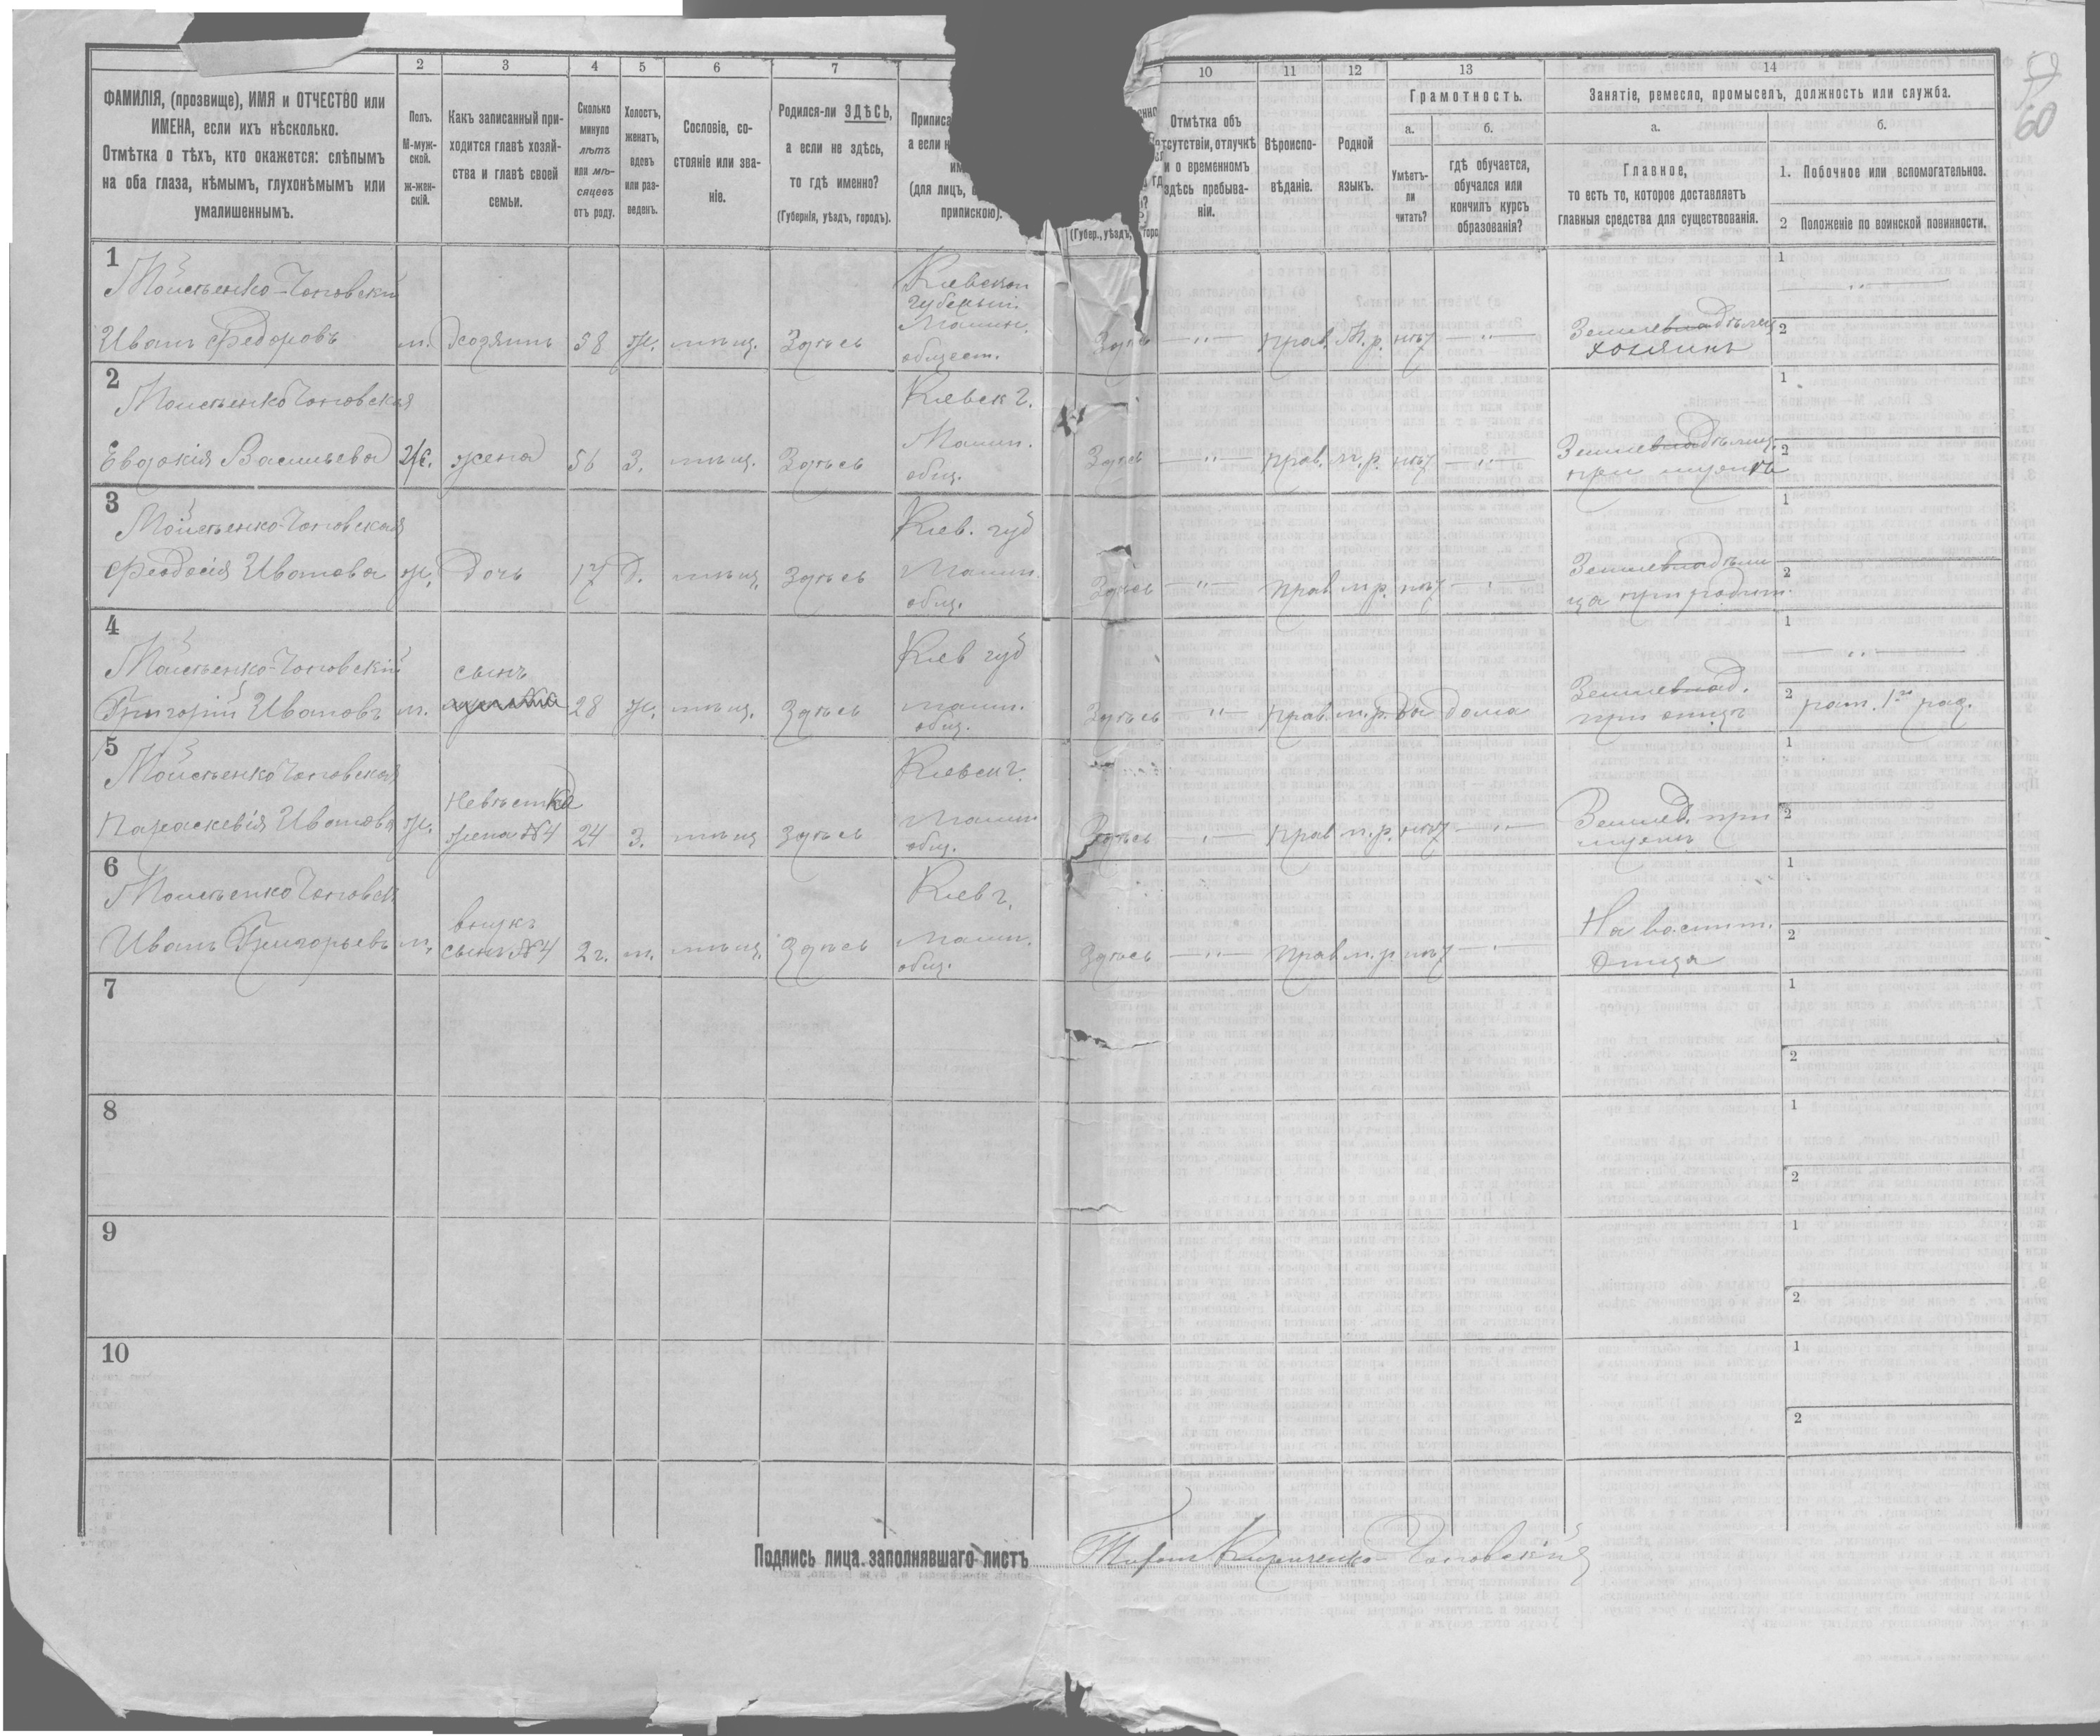 2 3 4 5 6 7 10 11 12 13 14
ФАМИЛІЯ, (прозвище), ИМЯ и ОТЧЕСТВО или
ИМЕНА, если ихъ нѣсколько.
Отмѣтка о тѣхъ, кто окажется: слѣпымъ
на оба глаза, нѣмымъ, глухонѣмымъ или
умалишеннымъ.
Полъ.
М-муж-
ской.
ж-жен-
скій.
Какъ записанный при-
ходится главѣ хозяй-
ства и главѣ своей
семьи.
Сколько
минуло
лѣтъ
или мѣ-
сяцевъ
отъ роду.
Холостъ,
женатъ,
вдовъ
или раз-
веденъ.
Сословіе, со-
стояніе или зва-
ніе.
Родился-ли ЗДѢСЬ,
а если не здѣсь,
то гдѣ именно?
(Губернія, уѣздъ, городъ).
Приписа
а если н
им
(для лицъ,
припискою).
(Губер., уѣздъ,
Отмѣтка объ
отсутствіи, отлучкѣ
и о временномъ
здѣсь пребыва-
ніи.
Вѣроиспо-
вѣданіе.
Родной
языкъ.
Грамотность.
а.
Умѣетъ-
ли
читать?
б.
гдѣ обучается,
обучался или
кончилъ курсъ
образованія?
Занятіе, ремесло, промыселъ, должность или служба.
а.
Главное,
то есть то, которое доставляетъ
главныя средства для существованія.
б.
1. Побочное или вспомогательное.
2 Положеніе по воинской повинности.
60
1
Моисѣенко-Чоповскій
Иванъ Федоровъ м. Хозяинъ 58 ж. мѣщ. Здѣсь
Кіевской
губерніи
общест.
Здѣсь — " — прав. М.р. нѣт — " —
Землевладѣлец
хозяинъ
1
2
2
Моисѣенко Чоповская
Евдокія Васильева Ж. жена 56 З. мѣщ. Здѣсь
Кіевск г.
общ.
Здѣсь — " — прав. м.р. нѣт — " —
Землевладѣлиц.
при мужѣ
1
2
3
Моисѣенко-Чоповская
Феодосія Иванова ж. дочь 17 д. мѣщ. Здѣсь
Кіев. губ
общ.
Здѣсь — " — прав м.р. нѣт —
Землевладѣли
ца при родит.
1
2
4
Моисѣенко-Чоповскій
Григорій Ивановъ м. сынъ 28 ж. мѣщ. Здѣсь
Кіев губ
общ.
Здѣсь — " — прав. м.р. да дома
Землевлад.
при отцѣ
1 — " —
2 рат. 1го раз.
5
Моисѣенко Чоповская
Невѣстка
Параскевія Иванова ж. жена №4 24 З. мѣщ Здѣсь
Кіевск г.
общ.
Здѣсь — прав м.р. нѣт — " —
Землед. при
мужѣ
1
2
6
Моисѣенко Чоповск
внукъ
Иванъ Григорьевъ м. сынъ №4 2 г. м. мѣщ. Здѣсь
Кіев г.
общ.
Здѣсь — " — прав м.р. нѣт —
На воспит.
отца
1
2
7
1
2
8
1
2
9
1
2
10
1
2
Подпись лица заполнявшаго листъ Кириченко-Чоповскій